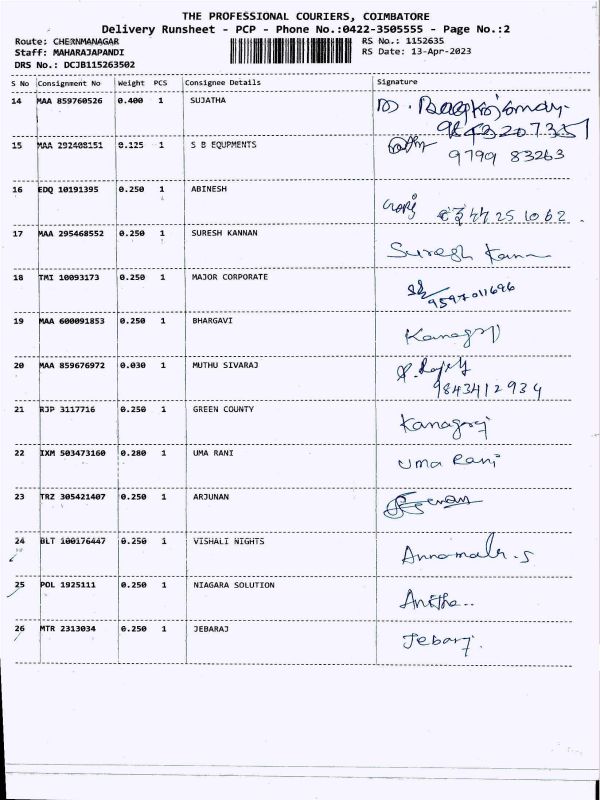 THE PROFESSIONAL COURIERS, COIMBATORE
Delivery Runsheet - PCP - Phone No.:0422-3505555 - Page No.:2
Route: CHERNMANAGAR RS No.: 1152635
Staff: MAHARAJAPANDI RS Date: 13-Apr-2023
DRS No.: DCJB115263502
S No Consignment No Weight PCS Consignee Details Signature
14 MAA 859760526 0.400 1 SUJATHA
15 MAA 292408151 0.125 1 S B EQUPMENTS
9799 83263
16 EDQ 10191395 0.250 1 ABINESH
17 MAA 295468552 0.250 1 SURESH KANNAN
Suresh Kann
18 TMI 10093173 0.250 1 MAJOR CORPORATE
9597011696
19 MAA 600091853 0.250 1 BHARGAVI
Kanagraj
20 MAA 859676972 0.030 1 MUTHU SIVARAJ
9843412934
21 RJP 3117716 0.250 1 GREEN COUNTY
Kanagaraj
22 IXM 503473160 0.280 1 UMA RANI
Uma Rani
23 TRZ 305421407 0.250 1 ARJUNAN
24 BLT 100176447 0.250 1 VISHALI NIGHTS
Annamalai.S
25 POL 1925111 0.250 1 NIAGARA SOLUTION
Anitha..
26 MTR 2313034 0.250 1 JEBARAJ
Jebaraj.